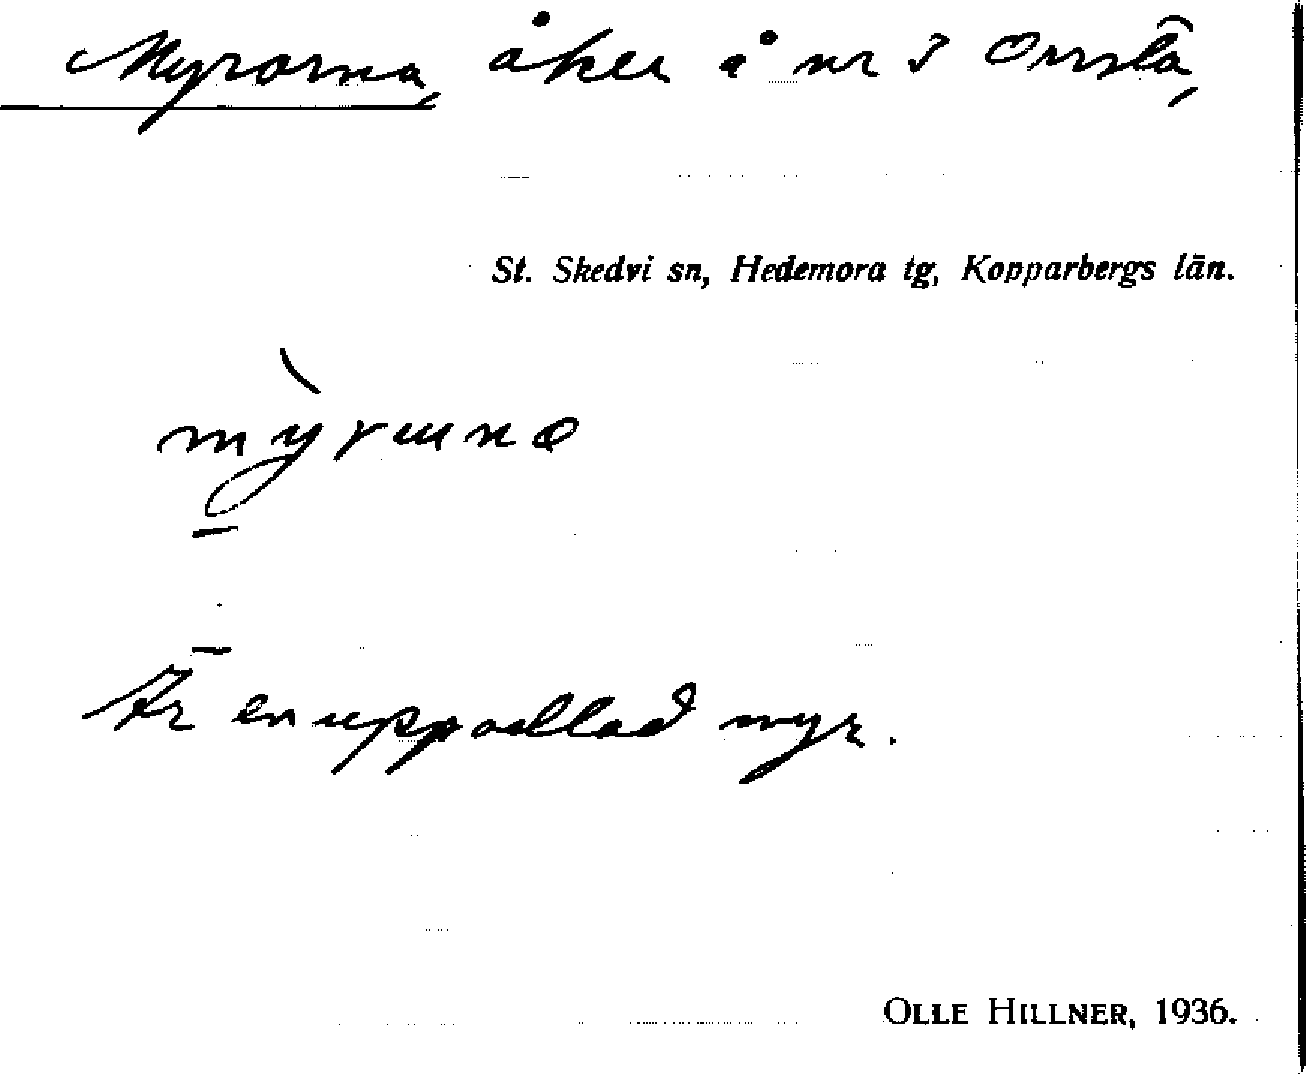 Myrorna, åker å nr 3 Orrsta,
St. Skedvi sn, Hedemora tg, Kopparbergs län.
Är en uppodlad myr.
OLLE HILLNER, 1936.